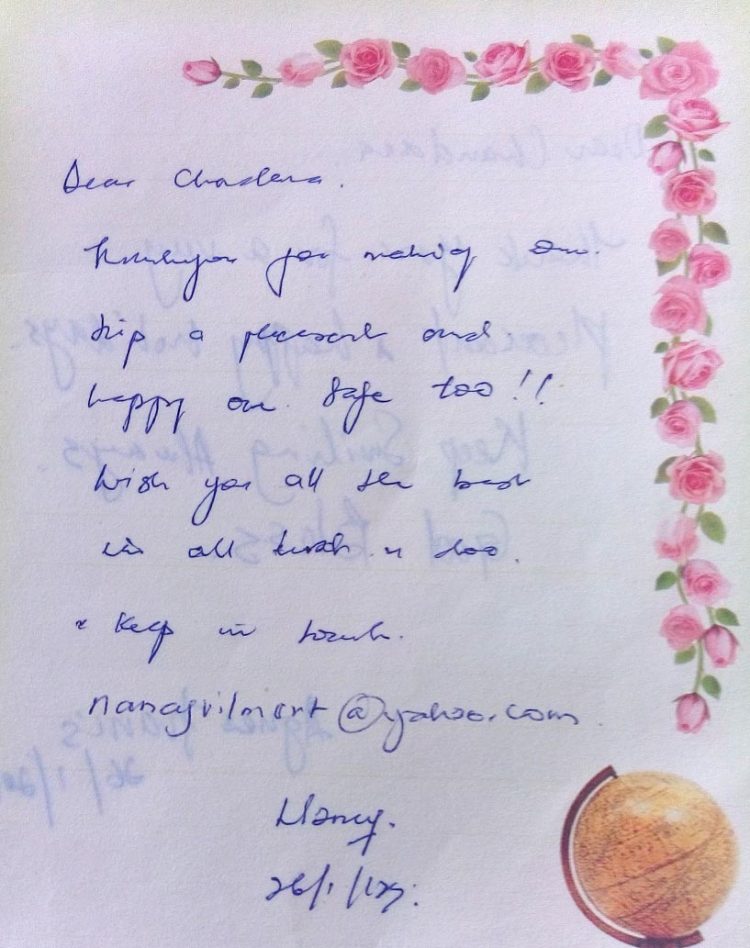 Dear Chandana.
Thankyou for making our
trip a pleasant and
happy one safe too!!
Wish you all the best
in all that u doo.
* Keep in touch.
@yahoo.com
Nancy.
26/1/